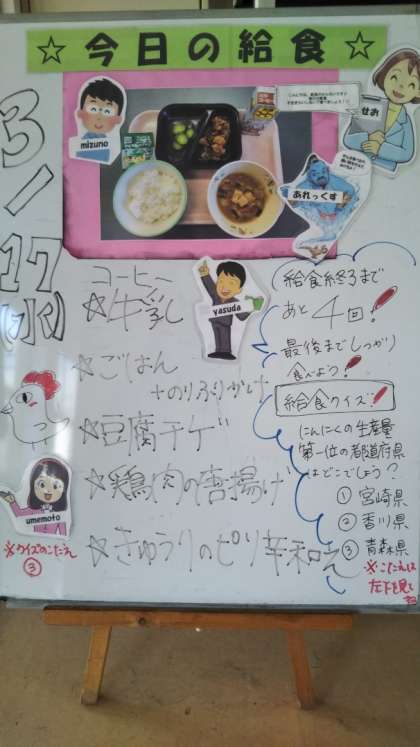 ☆今日の給食☆
mizuno
せお
あれっくす
3/17(水)
コーヒー
☆牛乳
yasuda
☆ごはん
+のりふりかけ
☆豆腐チゲ
☆鶏肉の唐揚げ
☆きゅうりのピリ辛和え
umemoto
※クイズのこたえ
③
給食終了まで
あと4回!
最後までしっかり
食べよう!
給食クイズ!
にんにくの生産量
第一位の都道府県
はどこでしょう?
①宮崎県
②香川県
③青森県
※こたえは
左下を見て